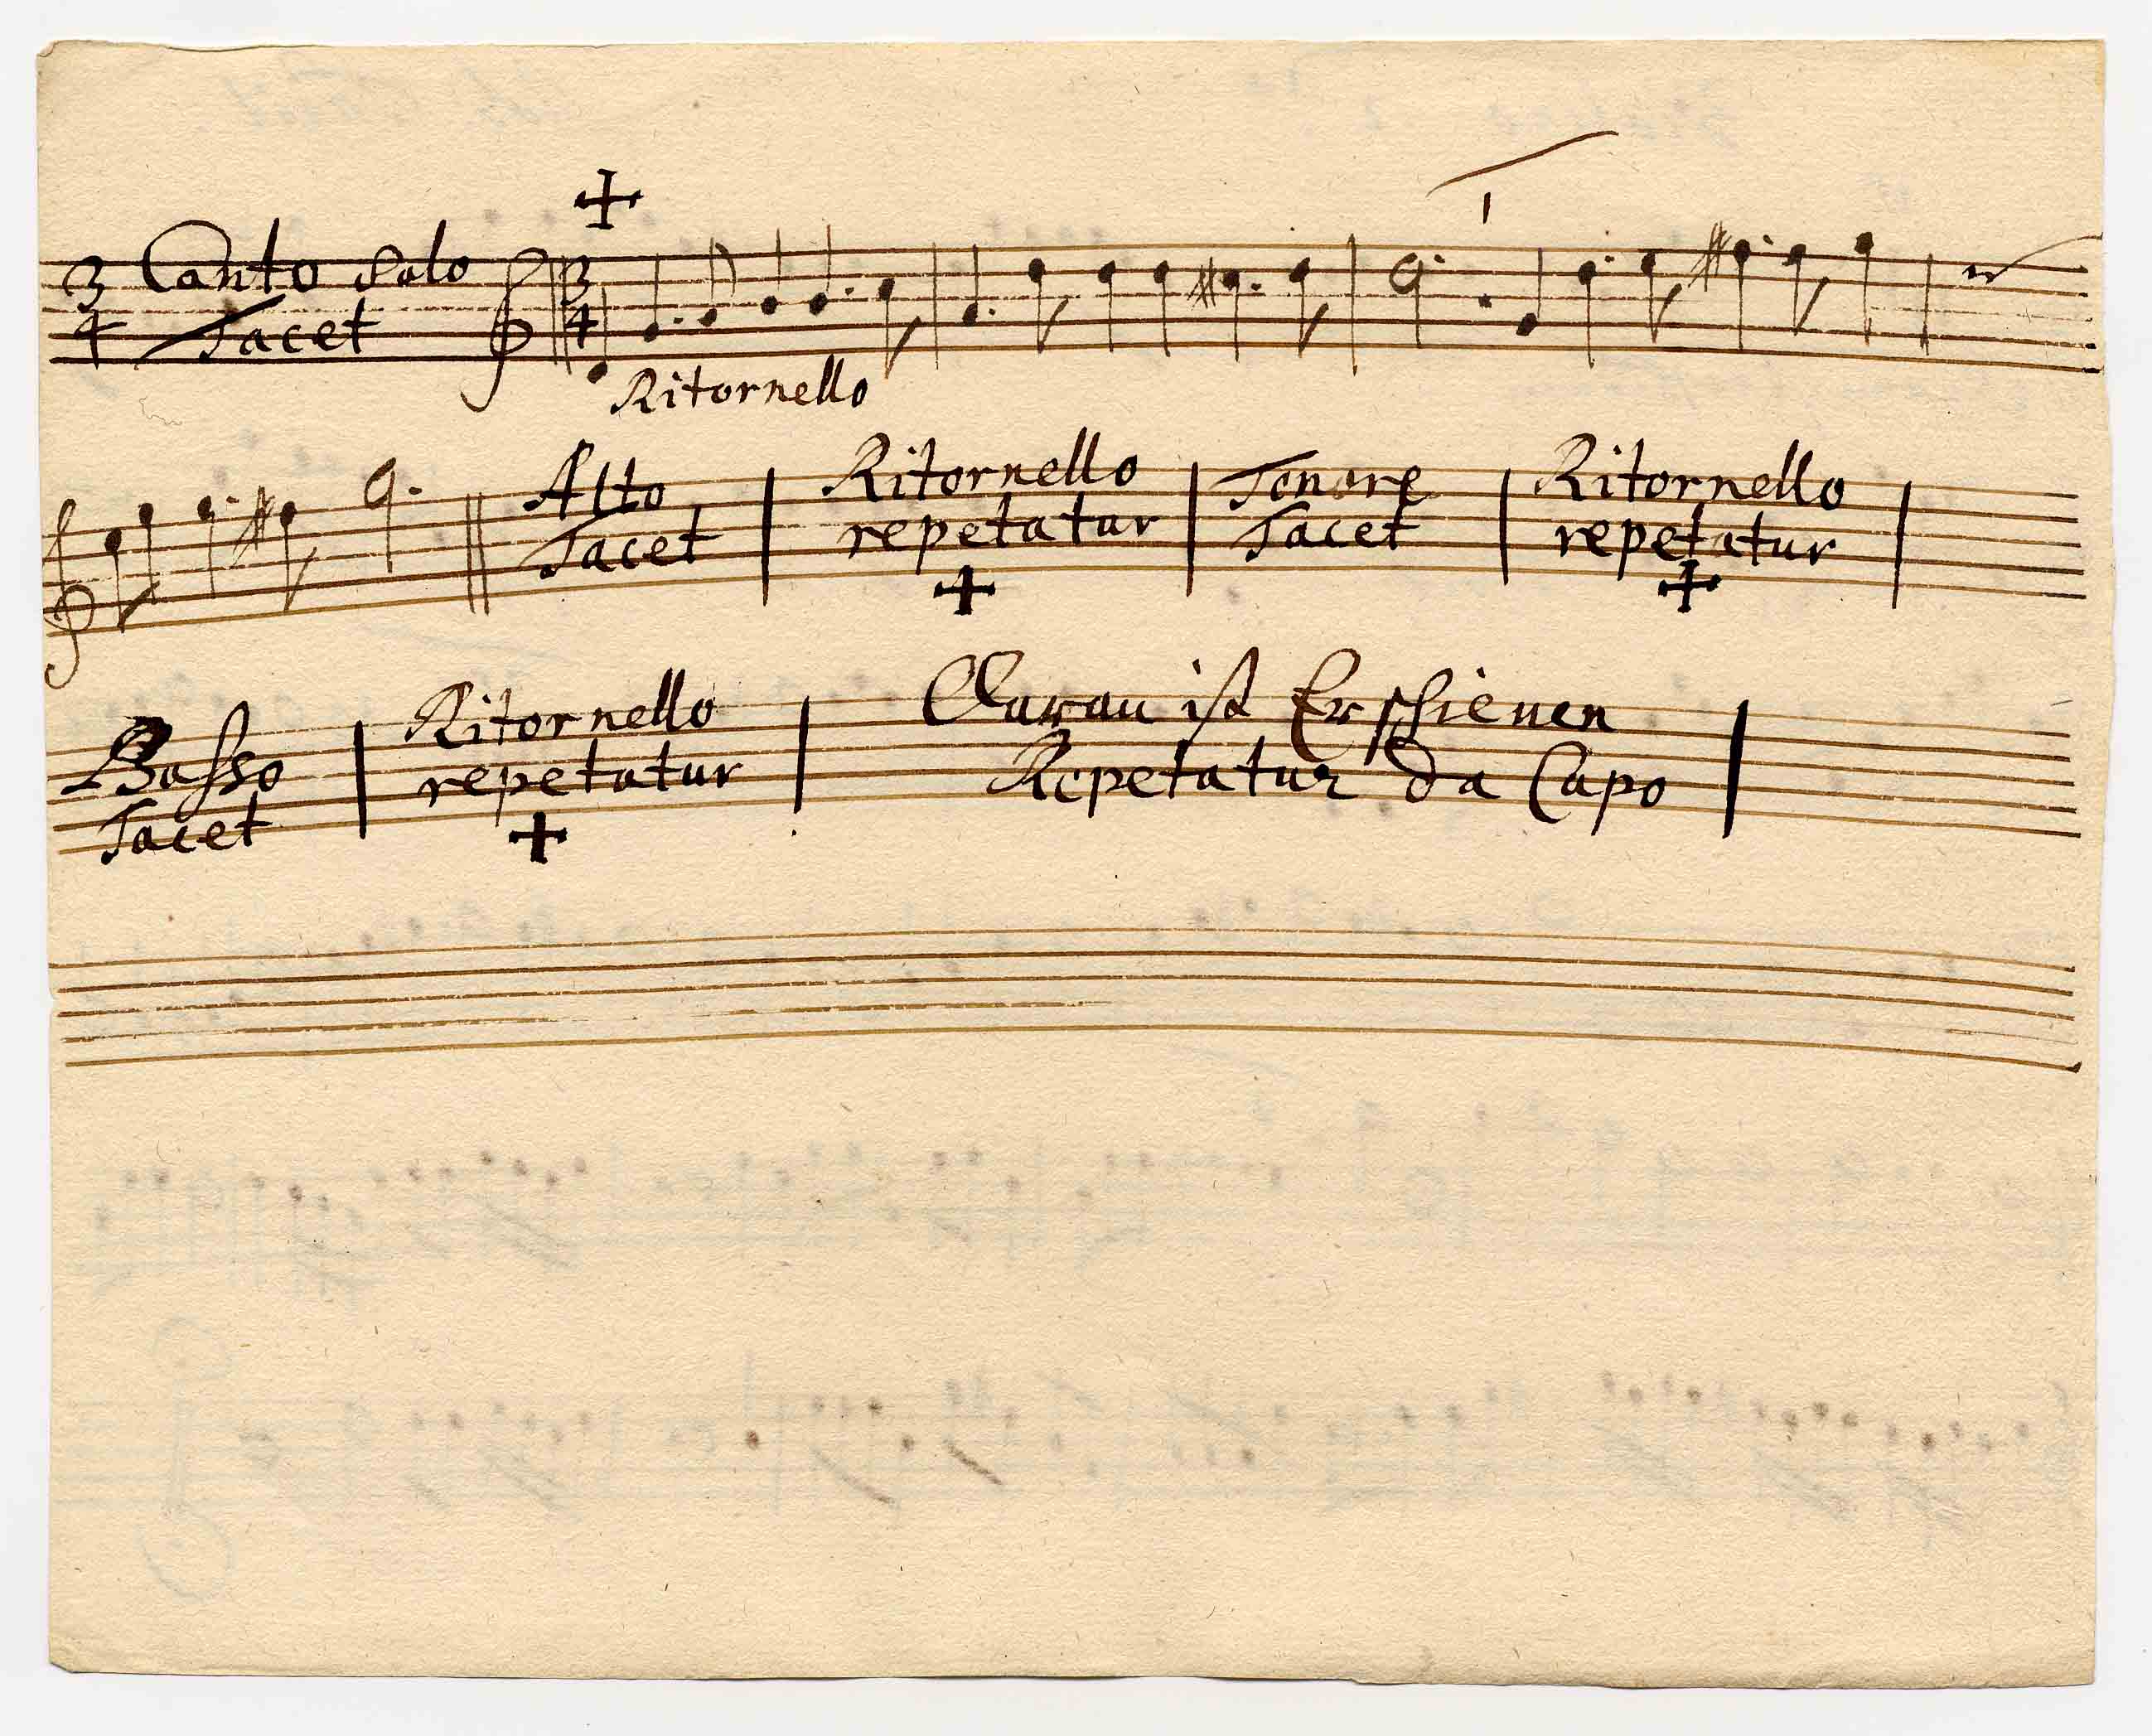 3 Canto Solo 3
4 Tacet 4
Ritornello
Alto Ritornello Tenore Ritornello
Tacet repetatur Tacet repetatur
Basso Ritornello Daran ist Erschienen
Tacet repetatur Repetatur da Capo